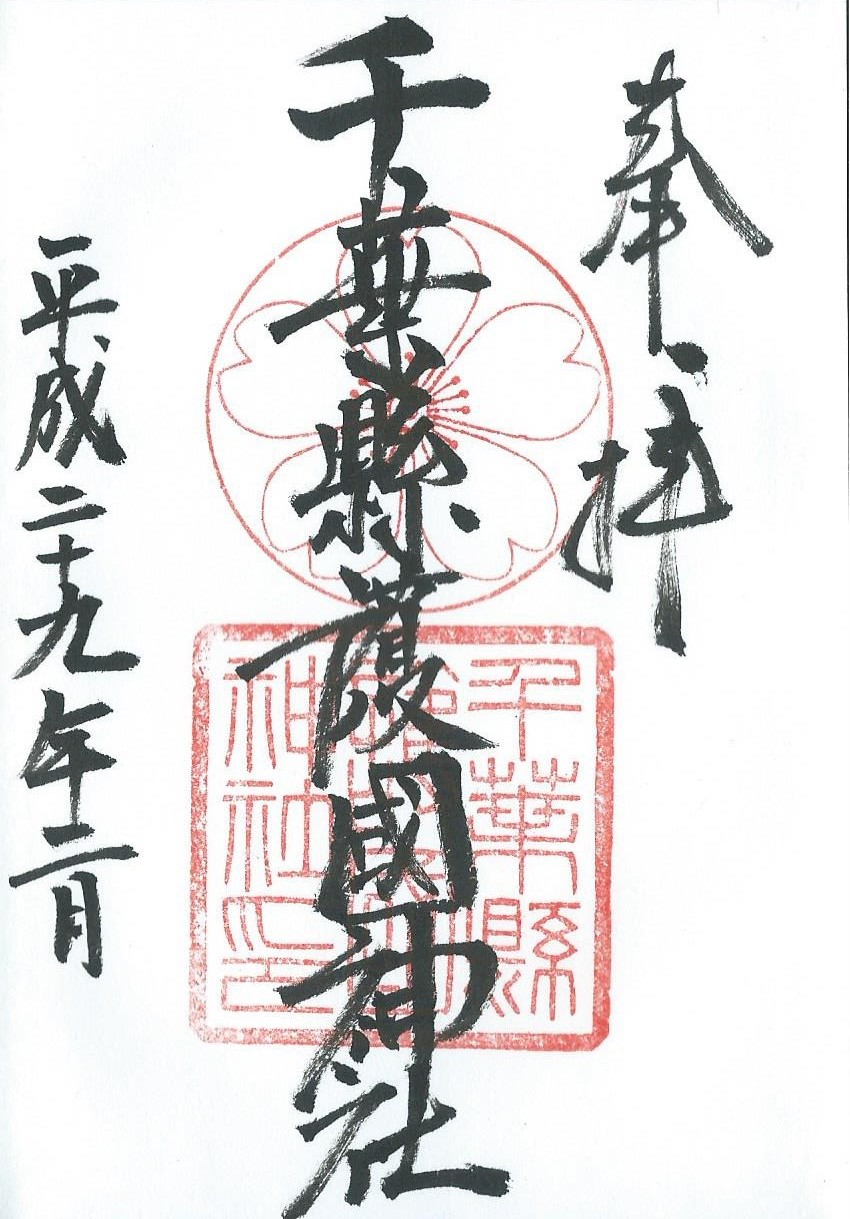 奉拝
千葉縣護國神社
平成二十九年二月
千葉縣
神社印